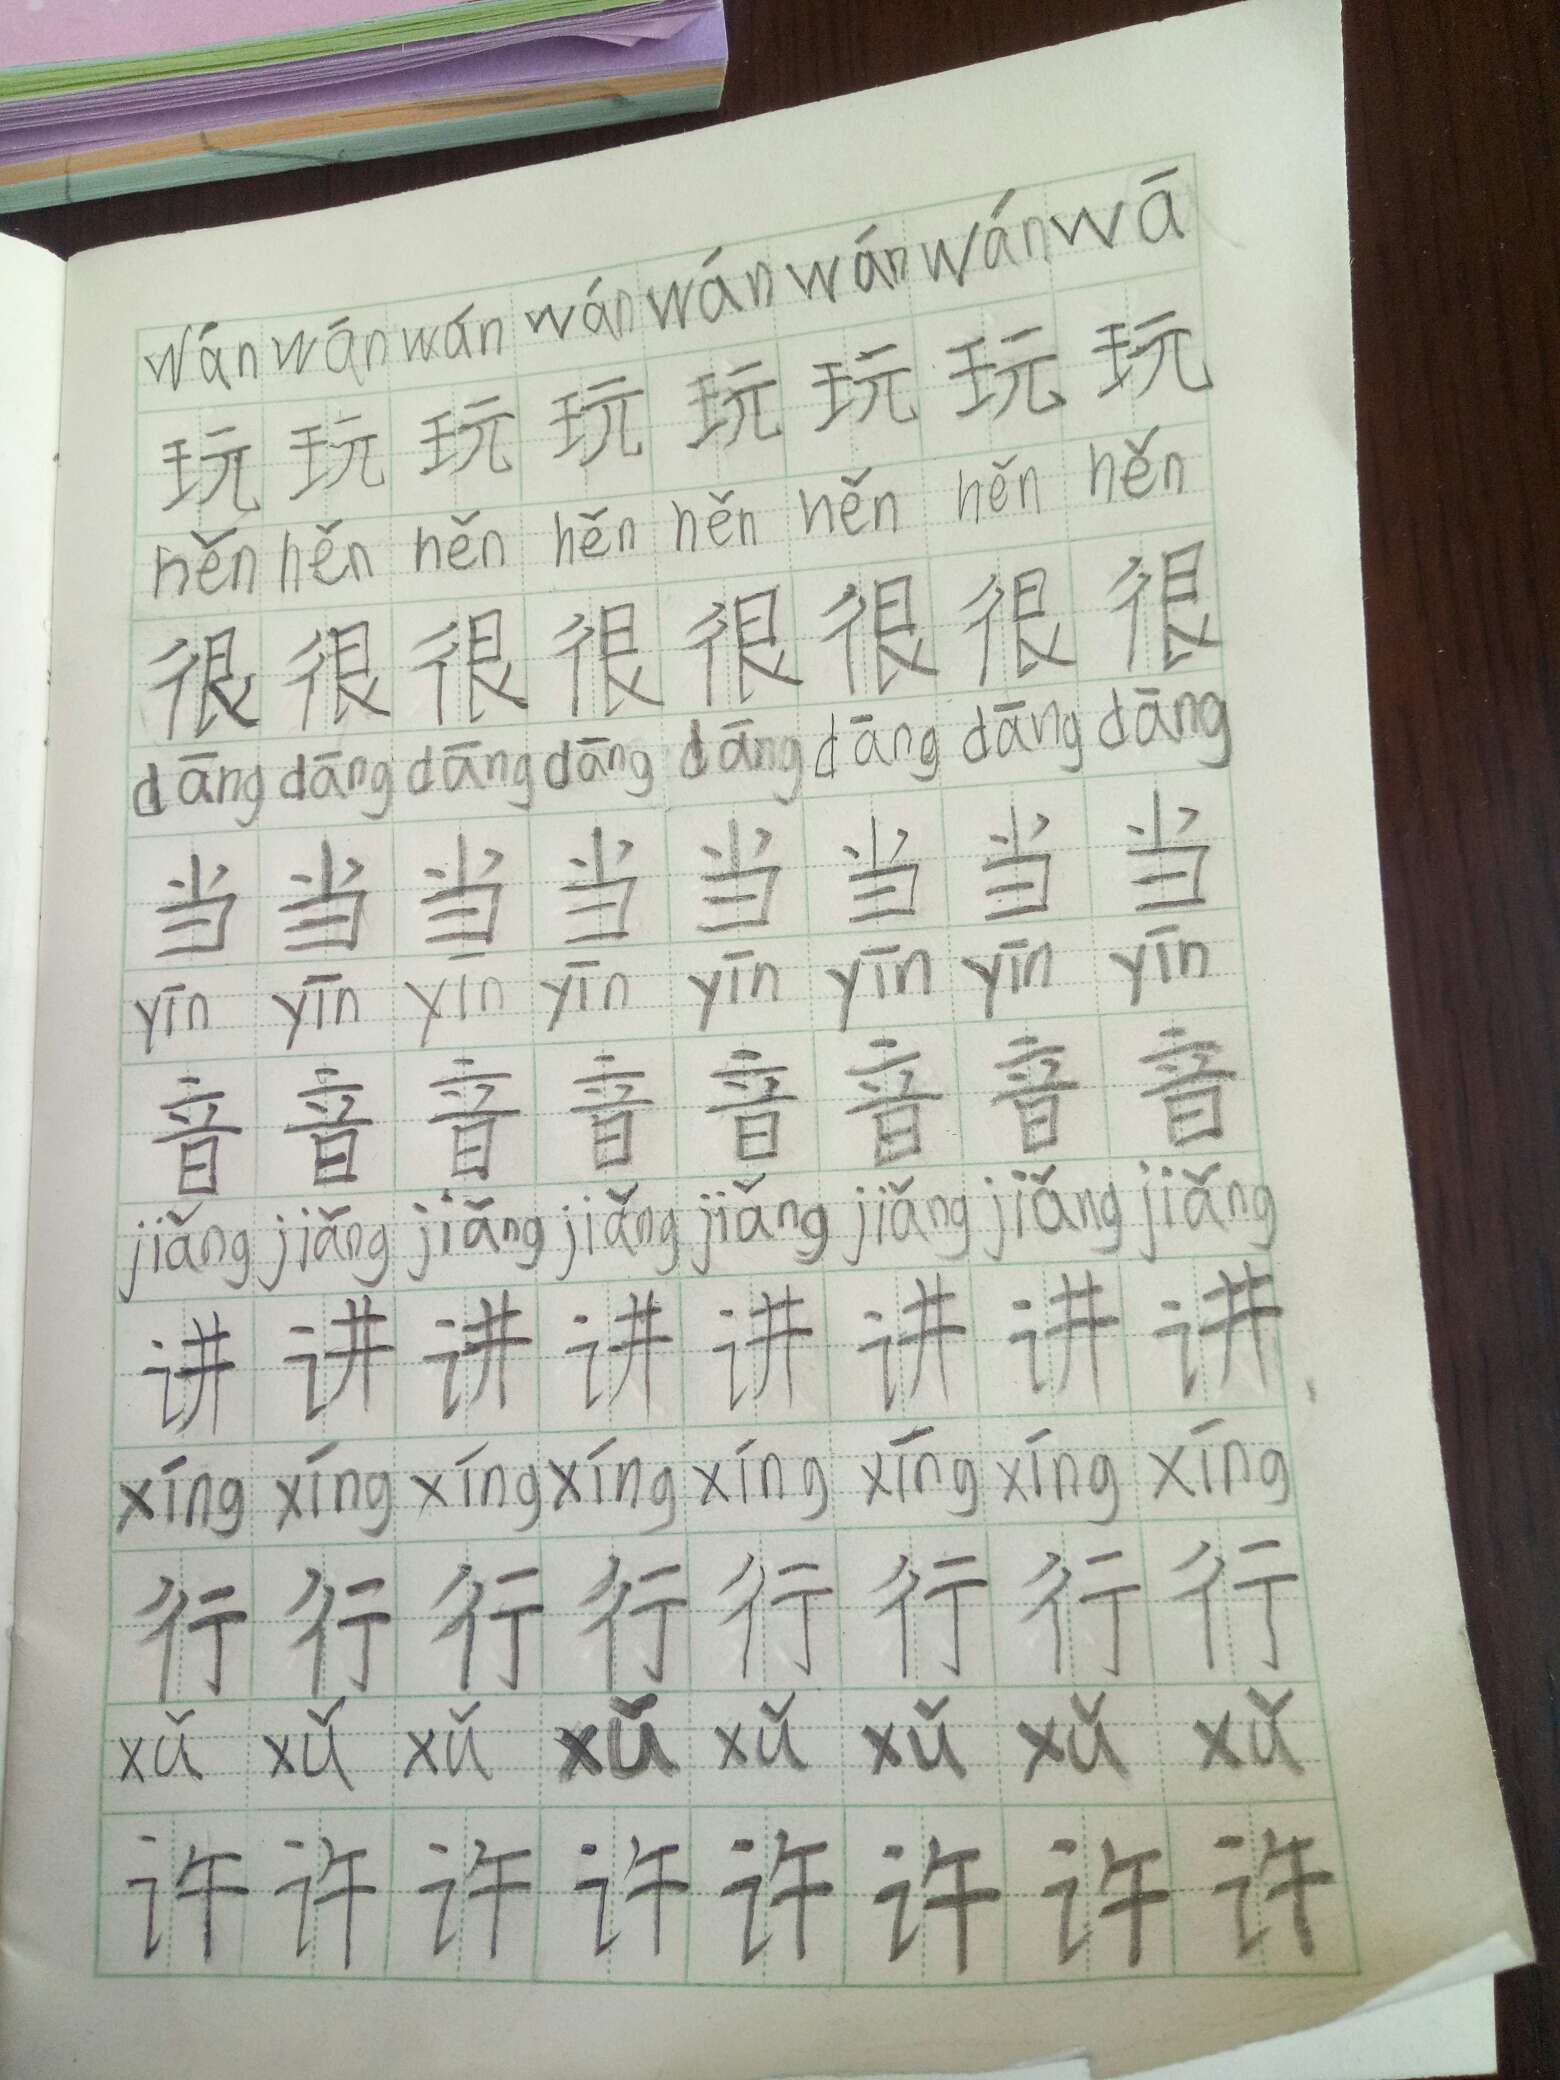 wán wān wán wán wán wán wán wā
玩 玩 玩 玩 玩 玩 玩 玩
hěn hěn hěn hěn hěn hěn hěn hěn
很 很 很 很 很 很 很 很
dāng dāng dāng dāng dāng dāng dāng dāng
当 当 当 当 当 当 当 当
yīn yīn yīn yīn yīn yīn yīn yīn
音 音 音 音 音 音 音 音
jiǎng jiǎng jiǎng jiǎng jiǎng jiǎng jiǎng jiǎng
讲 讲 讲 讲 讲 讲 讲 讲
xíng xíng xíng xíng xíng xíng xíng xíng
行 行 行 行 行 行 行 行
xǔ xǔ xǔ xǔ xǔ xǔ xǔ xǔ
许 许 许 许 许 许 许 许